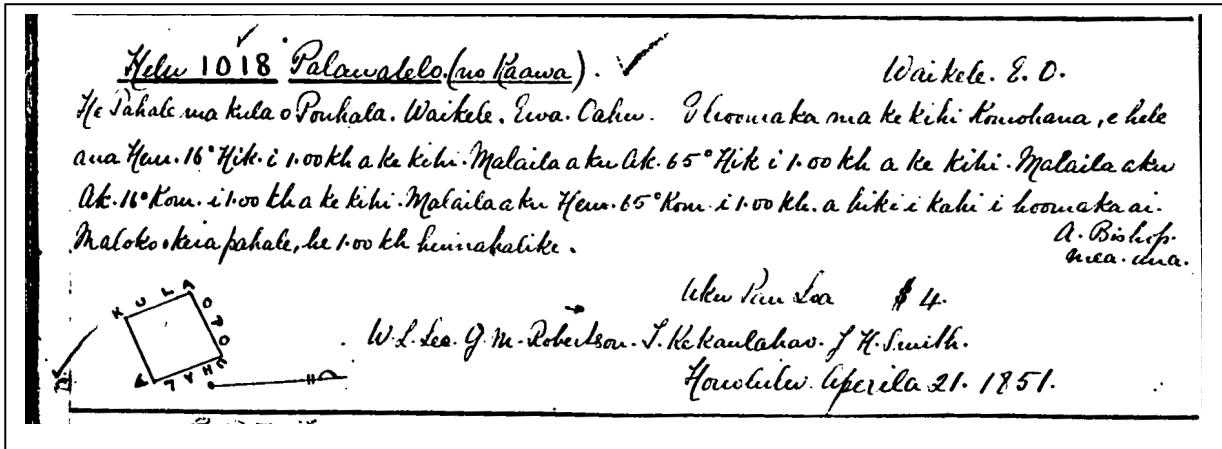 Helu 1018 Palawalelo (no Kaawa). Waikele. E. O.
He Pahale ma kula o Pouhala. Waikele. Ewa. Oahu. E hoomaka ma ke kihi Komohana, e hele
ana Hem. 16° Hik. i 1.00 kh a ke kihi. Malaila aku Ak. 65° Hik i 1.00 kh a ke kihi. Malaila aku
Ak. 16° Kom. i 1.00 kh a ke kihi. Malaila aku Hem. 65° Kom. i 1.00 kh. a hiki i kahi i hoomaka ai.
Maloko o keia pahale, he 1.00 kh huinahalike.
A. Bishop.
mea. ana.
KULA O POUHALA
Uku Pau Loa $4.
W. L. Lee. G. M. Robertson. J. Kekaulahao. J H. Smith.
Honolulu. Aperila 21. 1851.